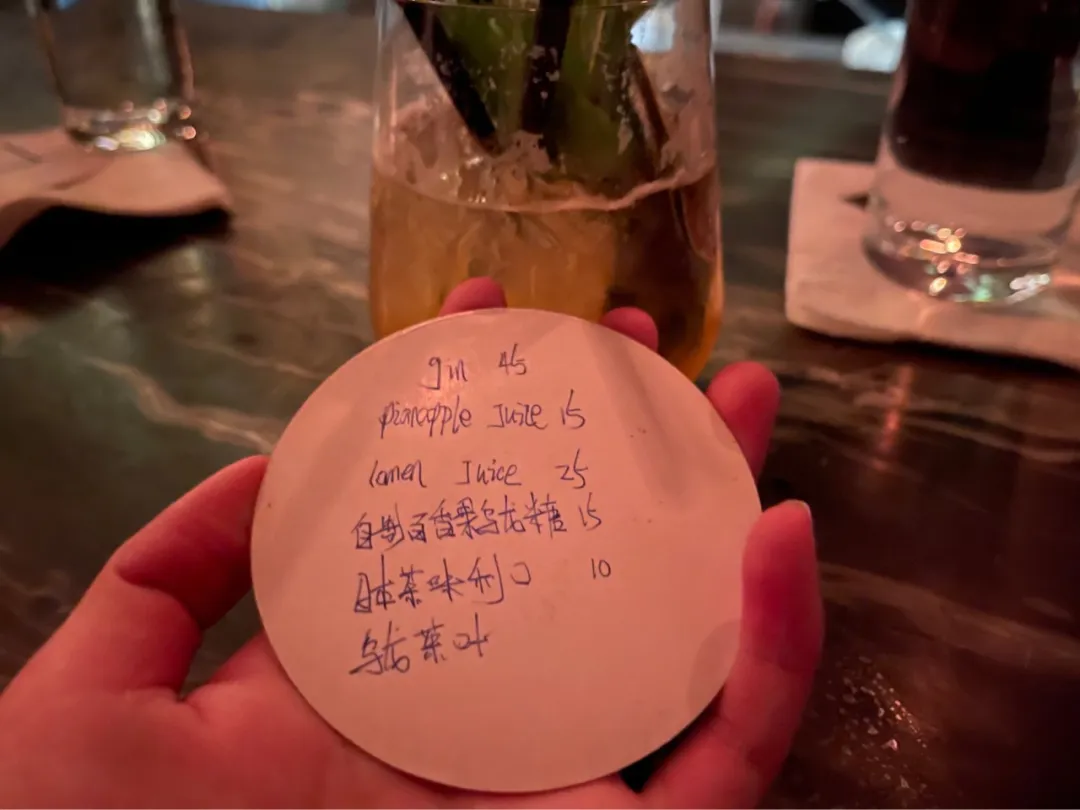 gin 45
pianapple Juice 15
lamen Juice 25
自制百香果乌龙糖 15
日本茶味利口 10
乌龙茶叶